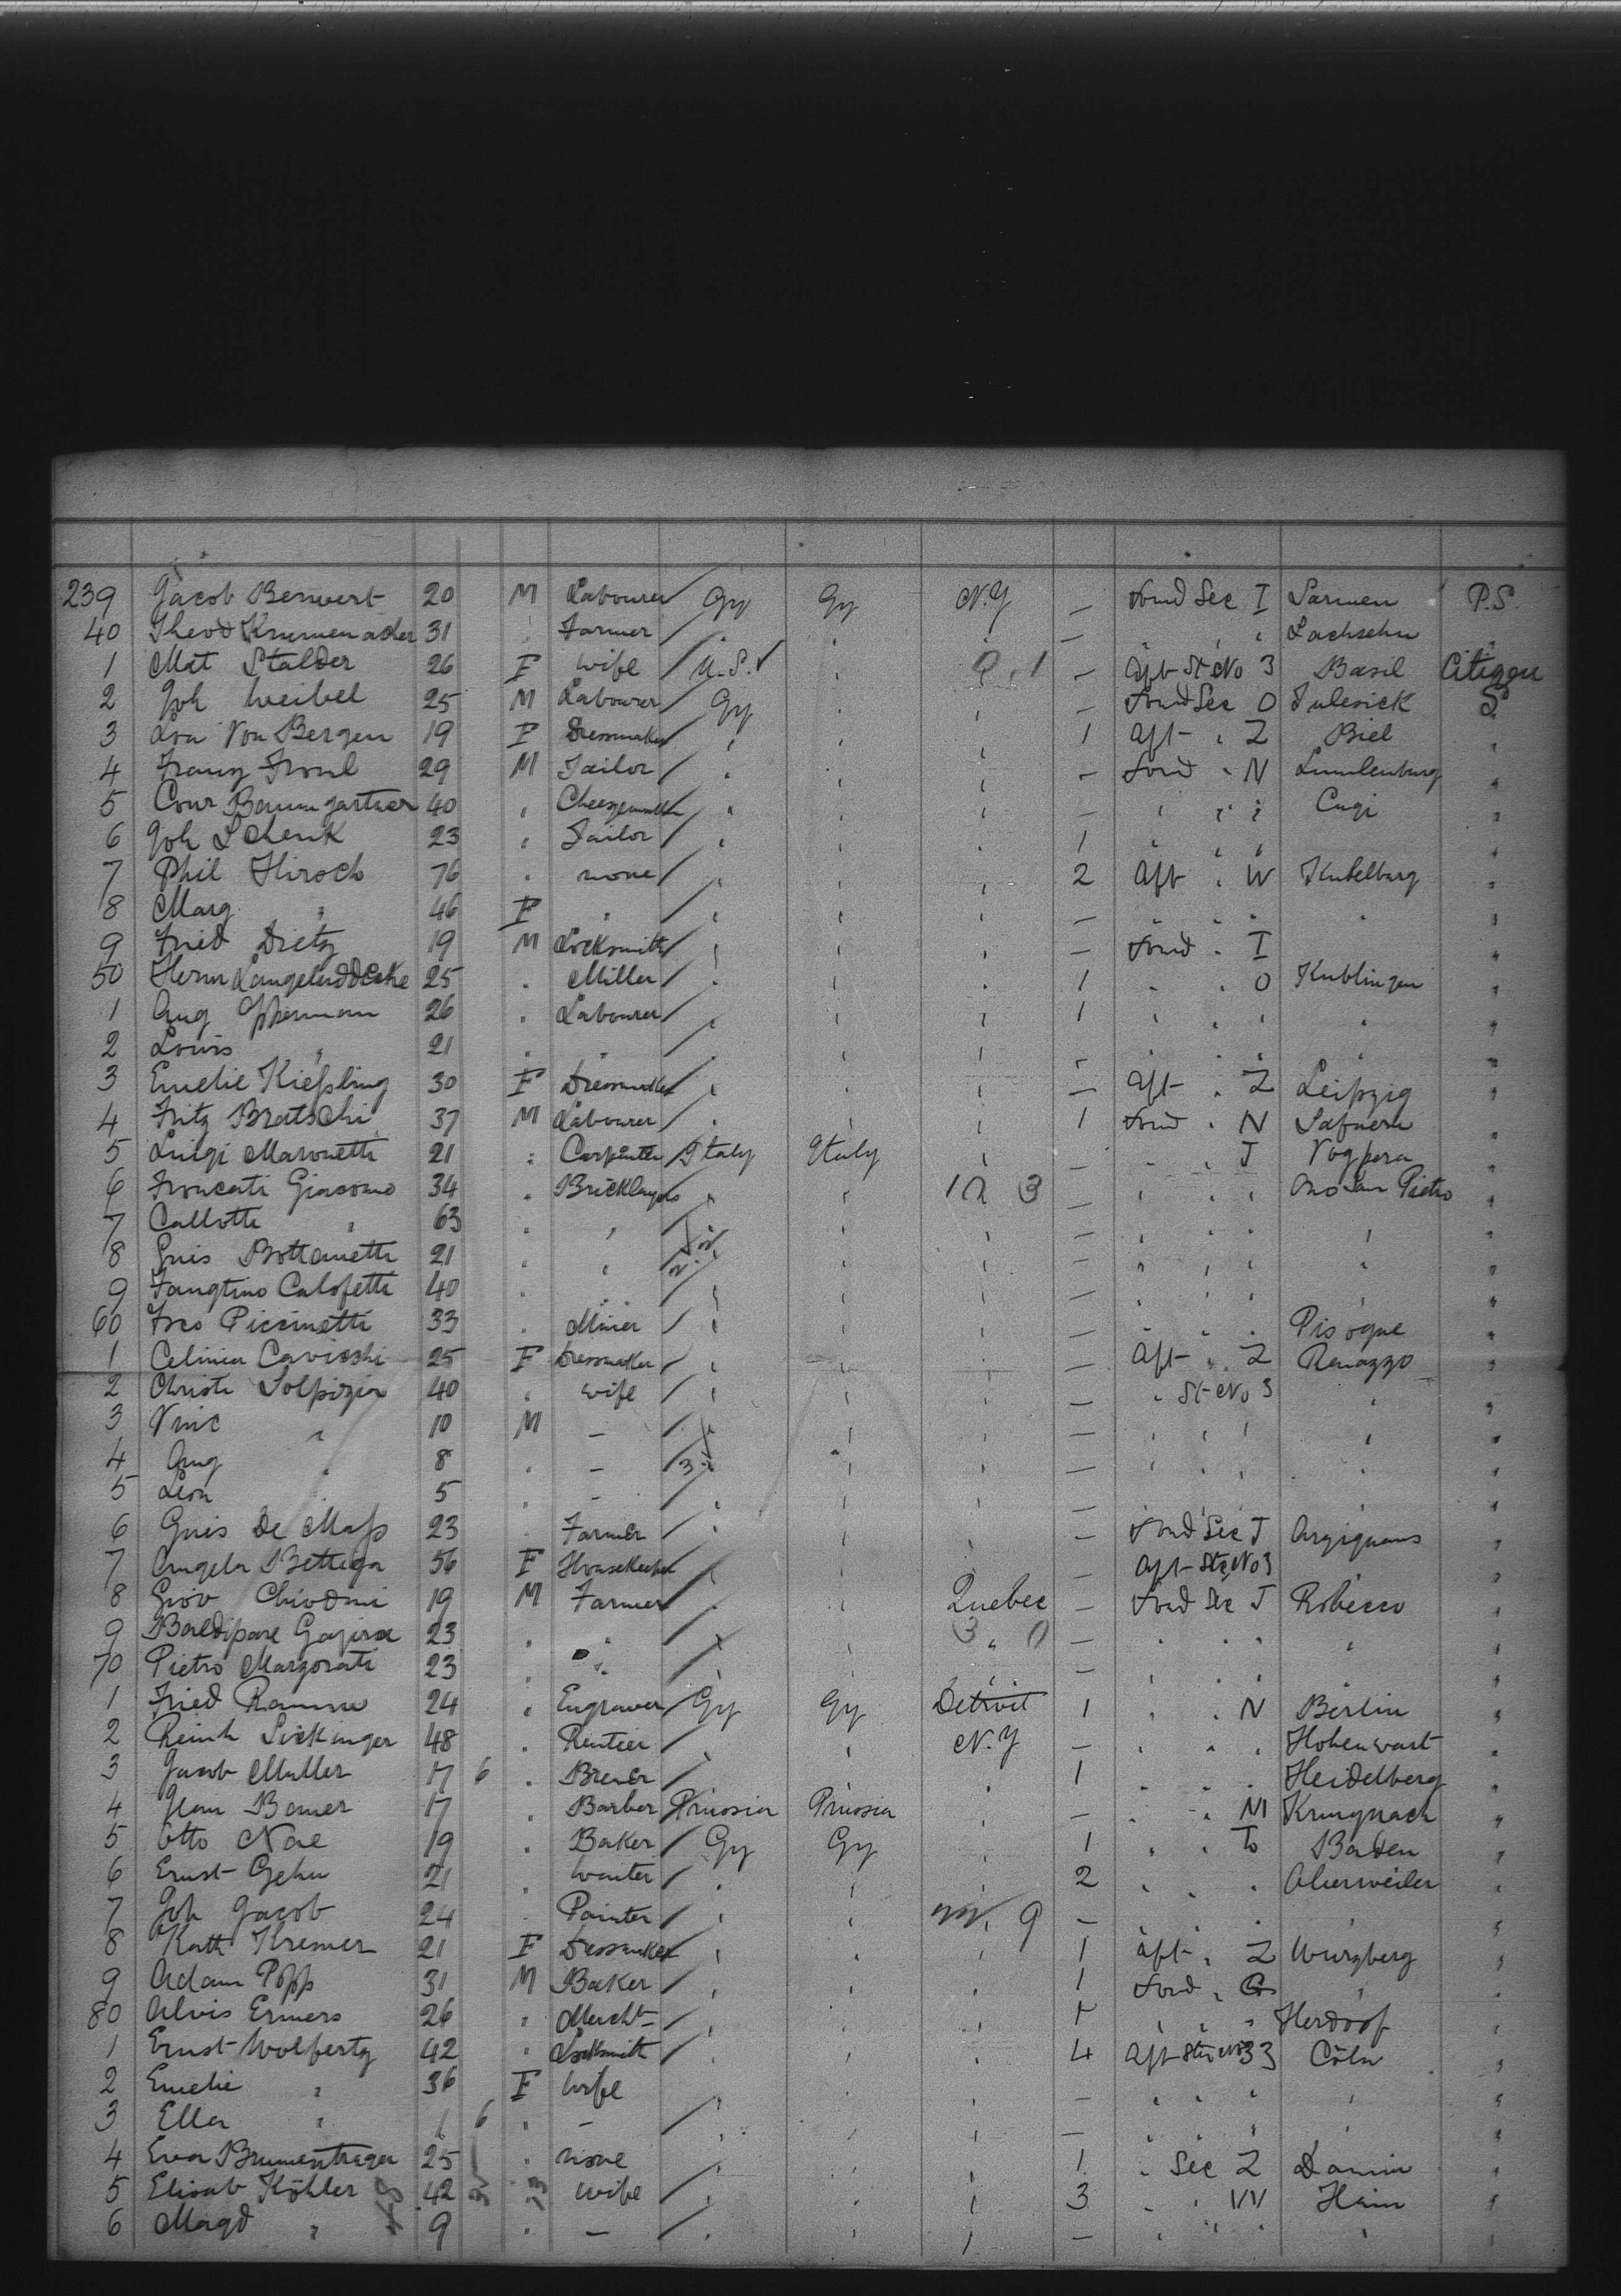 239 Jacob Benvert 20 M Labourer Gy Gy N.Y — Forwd Sec I Sarmen P.S.
40 Theod Krumenacher 31 " Farmer " " " — " " " Lachsehn "
1 Mat Stalder 26 F wife U.S. " " — Aft St No 3 Basil Citizen
2 Joh Weibel 25 M Labourer Gy " " — Forwd Sec O S
3 Von Bergen 19 F Dressmaker " " " 1 Aft " Z Biel "
4 Franz 29 M Tailor " " " — Forwd " N "
5 Baumgartner 40 " " " " — " " " Cugi "
6 Joh Schenk 23 " Tailor " " " 1 " " " "
7 Phil Hirsch 76 " none " " " 2 Aft " W Kuselburg "
8 Marg " 46 F " " " " — " " " " "
9 Fried Dietz 19 M Locksmith " " " — Forwd " I "
50 Herm Langeluddecke 25 " Miller " " " 1 " " O Kublingen "
1 Aug 26 " Labourer " " " 1 " " " " "
2 Louis " 21 " " " " " - " " " " "
3 Emelie Kießling 30 F Dressmaker " " " — Aft " Z Leipzig "
4 Fritz Bratschi 37 M Labourer " " " 1 Forwd " N Safnern "
5 Luigi Maronetti 21 " Carpenter Italy Italy " — " " J Voghera "
6 Froncati Giacomo 34 " Bricklayer " " 12 3 — " " " Pietro "
7 Callotti " 63 " " " " " — " " " " "
8 Guis Bottanetti 21 " " " " " — " " " " "
9 Faugtino Calofetti 40 " " " " " — " " " " "
60 Frco Piccinetti 33 " Miner " " " — " " " Pisogne "
1 Celinia Cavicchi 25 F Dressmaker " " " — Aft " Z Renazzo "
2 Christi Solpizia 40 " wife " " " — " St No 3 " "
3 Vinc " 10 M — " " " — " " " " "
4 Aug " 8 " — " " " — " " " " "
5 Leon " 5 " — " " " — " "
6 Guis De Maß 23 " Farmer " " " — Forwd Sec J "
7 Angela Bettega 56 F Housekeeper " " " — Aft Stg No 3 "
8 Giov Chiodini 19 M Farmer " " Quebec — Forwd Sec J Robecco "
9 23 " " " " 3 " 0 — " " " " "
70 Pietro Marzorati 23 " " " " — " " " "
1 Fried Ramm 24 " Engraver Gy Gy Detroit 1 " " N Berlin "
2 Reinh Sickinger 48 " Rentier " " N.Y — " " " Hohenwart "
3 Jacob Muller 17 6 " Brewer " " " 1 " " " Heidelberg "
4 17 " Barber Prussia Prussia " — " " "
5 Otto Nae 19 " Baker Gy Gy " 1 " " To Baden "
6 Ernst Gehn 21 " " " " 2 " " " Ahrweiler "
7 Joh Jacob 24 " Painter " " 9 — " " " " "
8 Kath Kremer 21 F Dressmaker " " " 1 Aft " Z Wurzberg "
9 Adam Popp 31 M Baker " " " 1 Forwd " G " "
80 Alois Ermers 26 " Mercht " " " 1 " " " Herdorf "
1 Ernst Wolfertz 42 " Locksmith " " " 4 Aft 33 Cöln "
2 Emelie " 36 F Wife " " " — " " " " "
3 Ella " 6 " — " " " — " " " " "
4 Eva 25 " none " " " 1 " Sec Z "
5 Elisab Köhler 42 " wife " " " 3 " " W "
6 Magd " 9 " — " " " — " " " " "